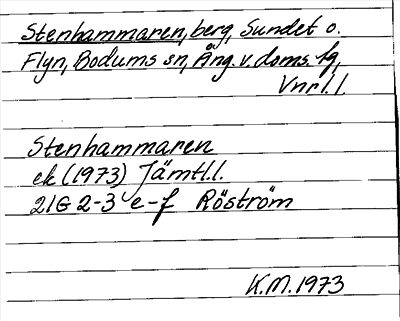 Stenhammaren, berg, Sundet o.
Flyn, Bodums sn, Ång. v. doms. fg,
Vnrl.l.
Stenhammaren
ek (1973) Jämtl.l.
21G 2-3 e-f Röström
K.M. 1973